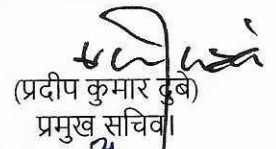 (प्रदीप कुमार दुबे)
प्रमुख सचिव।